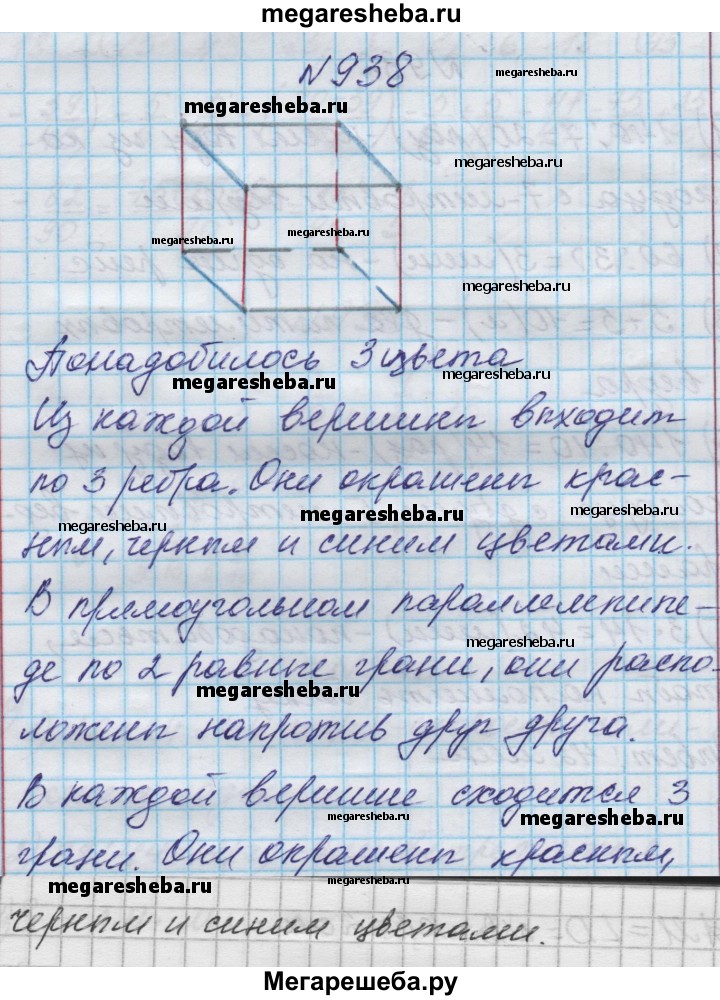 megaresheba.ru
№938
megaresheba.ru
megaresheba.ru
megaresheba.ru
megaresheba.ru
megaresheba.ru
Понадобилось 3 цвета
megaresheba.ru
megaresheba.ru
Из каждой вершины выходит
по 3 ребра. Они окрашены крас-
megaresheba.ru
megaresheba.ru
megaresheba.ru
ным, черным и синим цветами.
В прямоугольном параллелепипе-
megaresheba.ru
де по 2 равные грани, они распо-
megaresheba.ru
ложены напротив друг друга.
В каждой вершине сходится 3
megaresheba.ru
megaresheba.ru
грани. Они окрашены красным,
megaresheba.ru
megaresheba.ru
черным и синим цветами.
Мегарешеба.ру